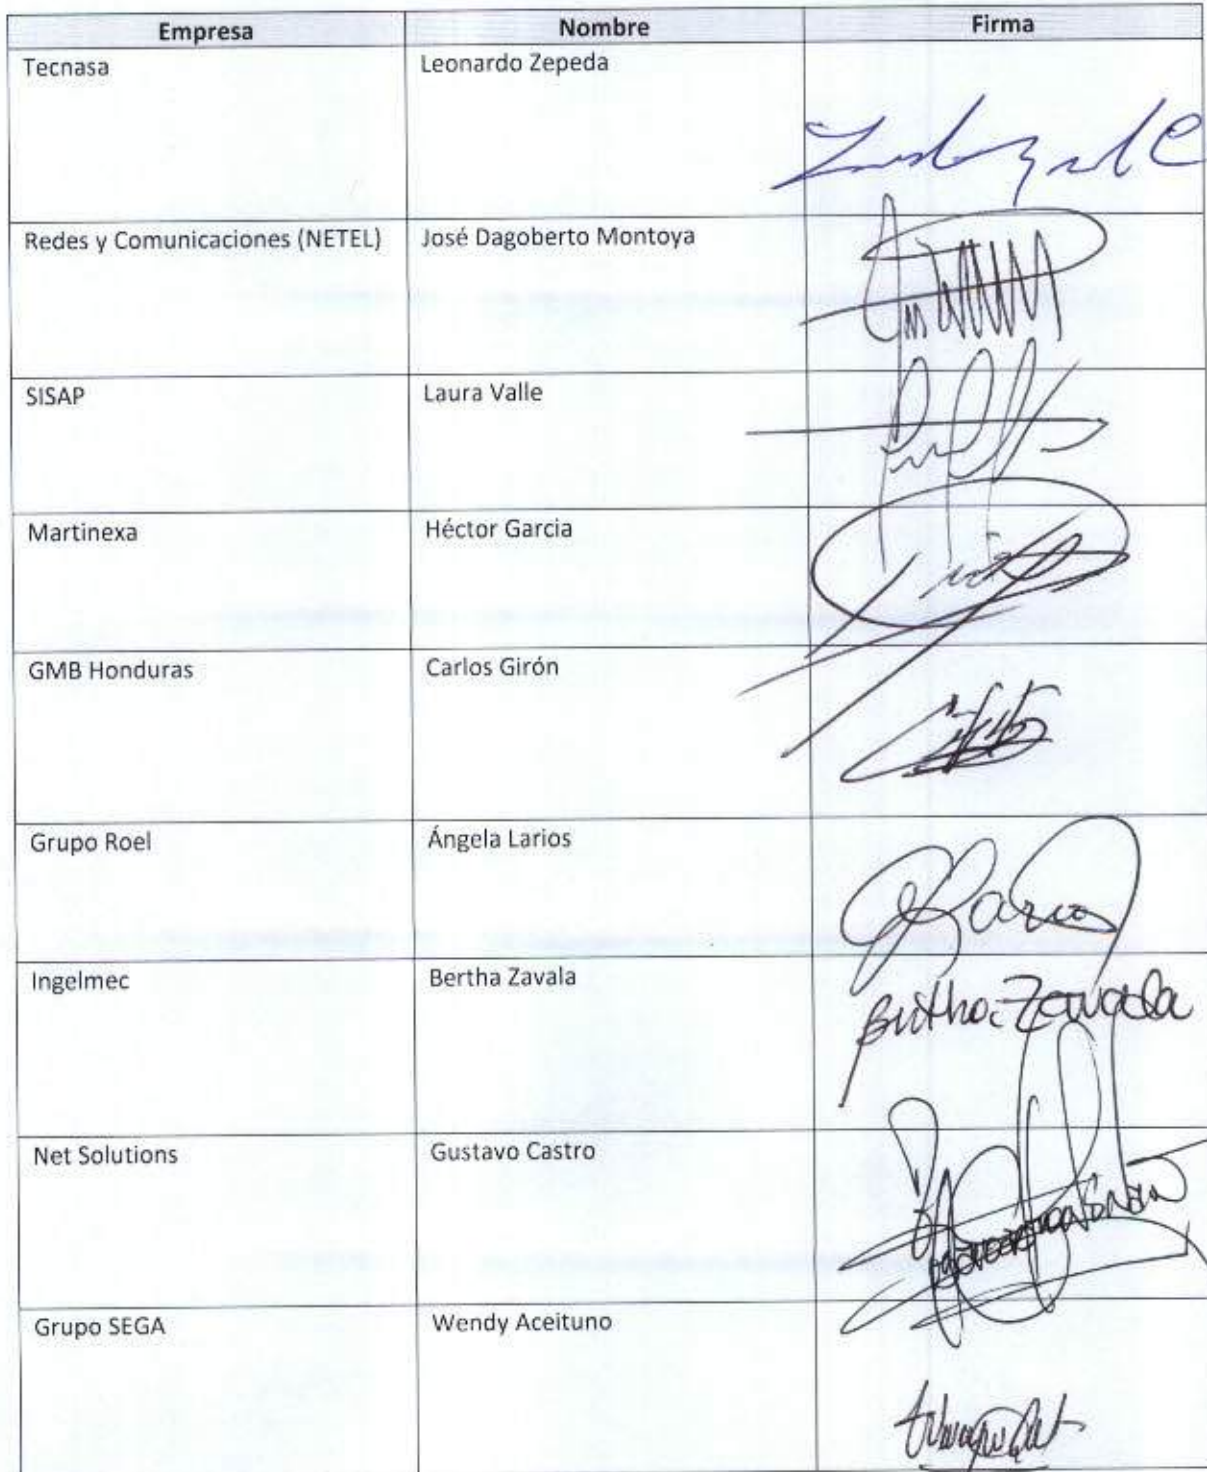 Empresa Nombre Firma
Tecnasa Leonardo Zepeda
Redes y Comunicaciones (NETEL) José Dagoberto Montoya
SISAP Laura Valle
Martinexa Héctor Garcia
GMB Honduras Carlos Girón
Grupo Roel Ángela Larios
Ingelmec Bertha Zavala
Bertha Zavala
Net Solutions Gustavo Castro
Grupo SEGA Wendy Aceituno